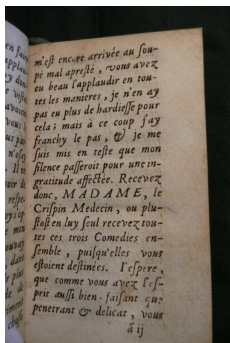 m'est encore arrivée au sou-
pé mal apresté, vous avez
eu beau l'applaudir en tou-
tes les manieres, je n'en ay
pas eu plus de hardiesse pour
cela ; mais à ce coup j'ay
franchy le pas, & je me
suis mis en teste que mon
silence passeroit pour une in-
gratitude affectée. Recevez
donc, MADAME, le
Crispin Medecin, ou plu-
stost en luy seul recevez tou-
tes ces trois Comedies en-
semble, puisqu'elles vous
estoient destinées. I'espere,
que comme vous avez l'es-
prit aussi bien-faisant que
penetrant & delicat, vous
ã ij